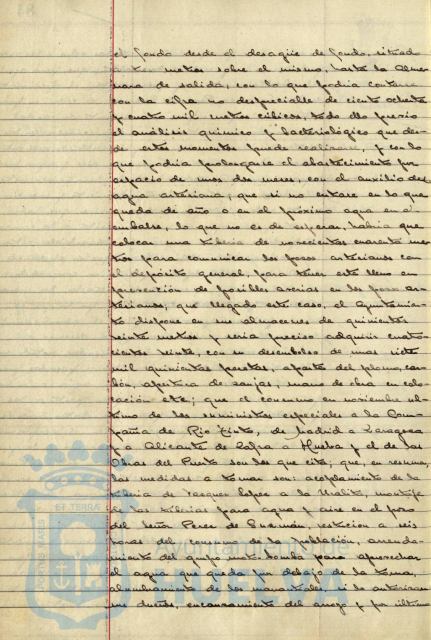 el fondo desde el desagüe de fondo, situado
a tres metros sobre el mismo, hasta la Alme-
nara de salida, con lo que podria contarse
con la cifra no despreciable de ciento ochenta
y cuatro mil metros cúbicos, todo ello previo
el análisis quimico y bacteriológico que des-
de estos momentos puede realizarse, y con lo
que podria prolongarse el abastecimiento por
espacio de unos dos meses, con el auxilio del
agua artesiana; que si no entrase en lo que
queda de año o en el próximo agua en el
embalse, lo que no es de esperar, habria que
colocar una tuberia de novecientos cuarenta me-
tros para comunicar los pozos artesianos con
el depósito general, para tener este lleno en
prevención de posibles averias en los pozos ar-
tesianos; que llegado este caso, el Ayuntamien-
to dispone en sus almacenes de quinientos
veinte metros y seria preciso adquirir cuatro-
cientos veinte, con un desembolso de unas siete
mil quinientas pesetas, aparte del plomo, car-
bón, apertura de zanjas, mano de obra en colo-
cación etc; que el consumo en noviembre úl-
timo de los suministros especiales a la Com-
pañia de Rio Tinto, de Madrid a Zaragoza
y a Alicante de Zafra a Huelva y el de las
Obras del Puerto son los que cita; que, en resumen,
las medidas a tomar son: acoplamiento de la
tuberia de Vazquez Lopez a la Usalita, montaje
de las tuberias para agua y aire en el pozo
del Señor Perez de Guzmán, restricion a seis
horas del consumo de la población, arrenda-
miento del grupo moto-bomba para aprovechar
el agua que queda por debajo de la toma,
alumbramiento de los manantiales, si lo autorizan
sus dueños, encauzamiento del arroyo y por último